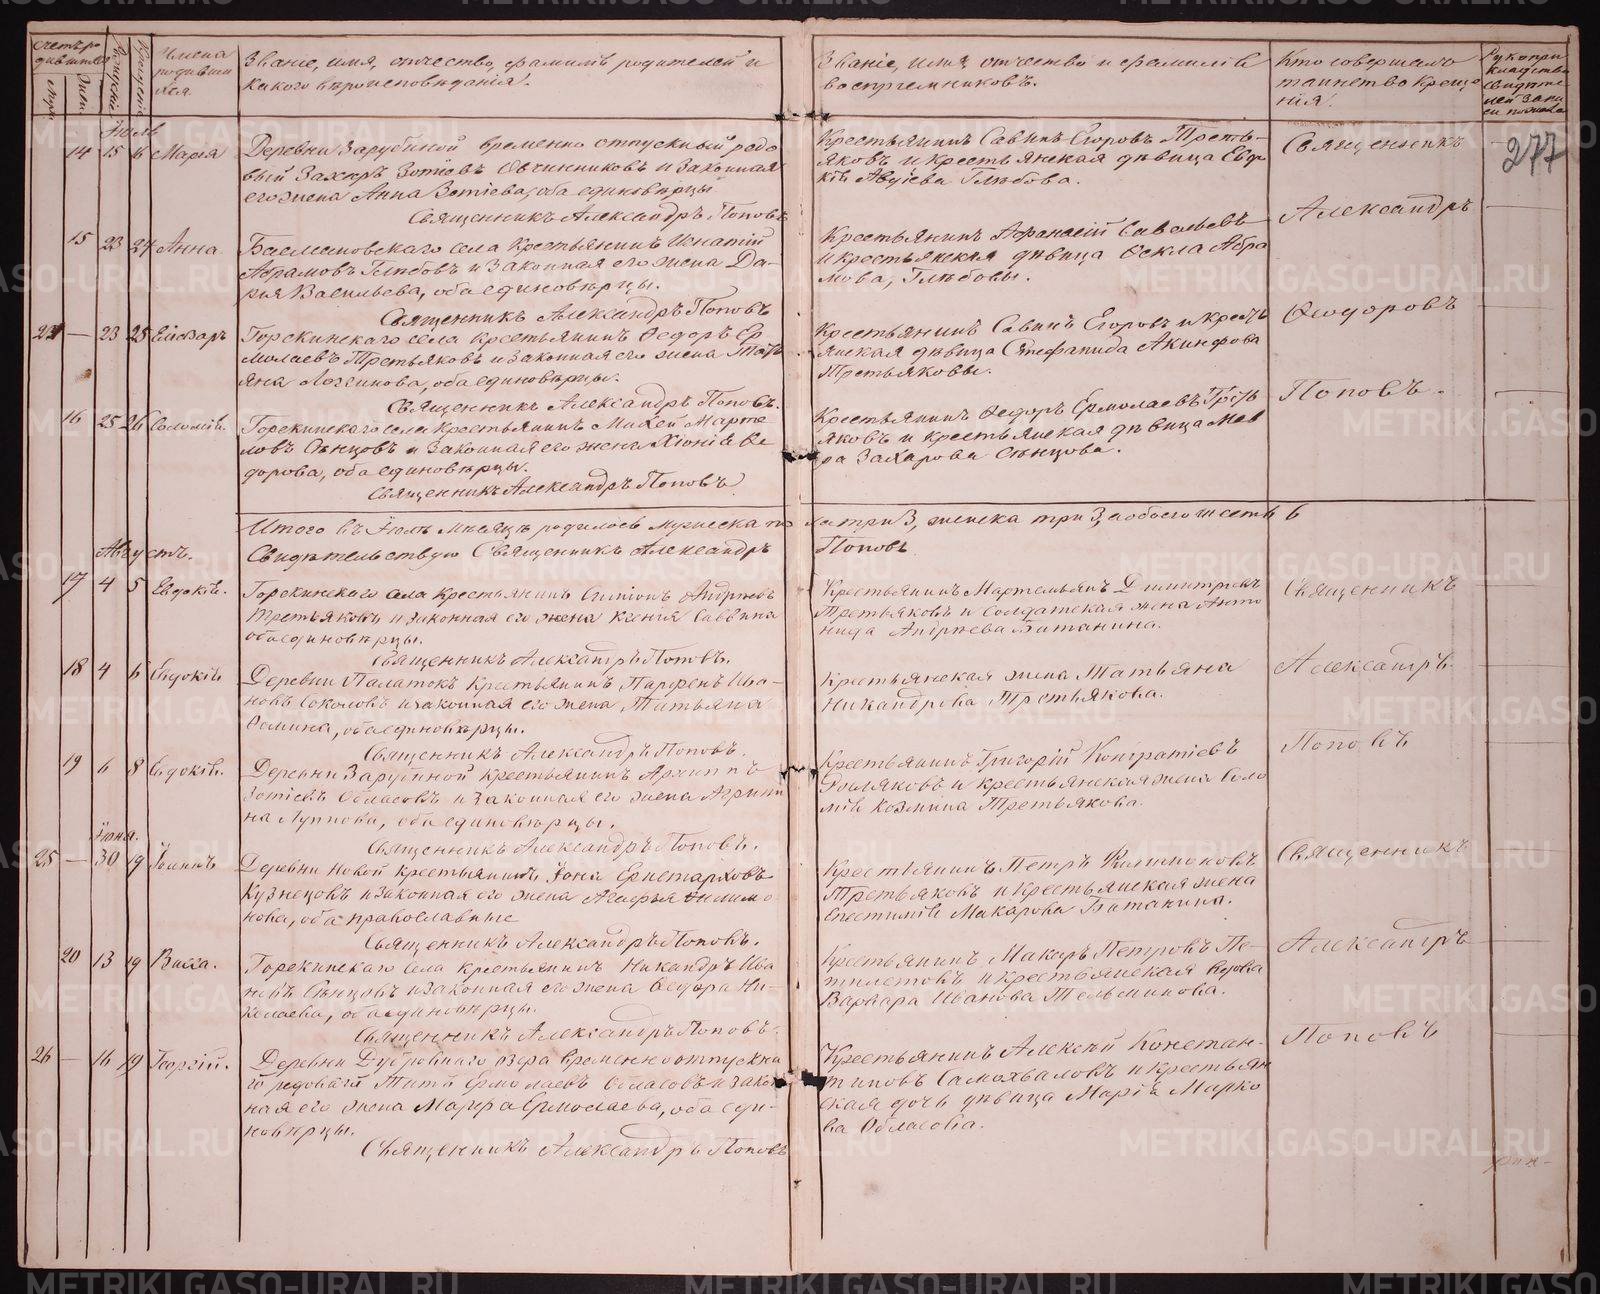 Счетъ ро
дившихся
Рожденія
Крещенія
Имена
родивши
хся.
Званіе, имя, отчество, фамилія родителей и
какого вѣроисповѣданія.
Званіе, имя, отчество и фамилія
воспріемниковъ.
Кто совершалъ
таинство креще
нія.
277
Іюль
14 15 16 Марія
Деревни Зарубиной временно отпускный рядо
вый Захаръ Зотіевъ Овчинниковъ и законная
его жена Анна Зотіева, оба единовѣрцы
Священникъ Александръ Поповъ
Крестьянинъ Савинъ Егоровъ Треть-
яковъ и крестьянская дѣвица Евдо
кія Глѣбова.
Священникъ
15 23 24 Анна
села Крестьянинъ Игнатій
Абрамовъ Глѣбовъ и законная его жена Да-
рья Васильева, оба единовѣрцы.
Священникъ Александръ Поповъ
Крестьянинъ Афанасій Савельевъ
и крестьянская дѣвица Ѳекла Абра
мова, Глѣбовы.
Александръ
24 — 23 25 Елеазаръ
Горскинскаго села Крестьянинъ Ѳедоръ Ер
молаевъ Третьяковъ и законная его жена Тать
яна Логинова, оба единовѣрцы.
Священникъ Александръ Поповъ.
Крестьянинъ Савинъ Егоровъ и крестъ
янская дѣвица Стефанида Акинфова
Третьяковы.
Ѳеодоровъ
16 25 26 Соломія.
Горскинскаго села крестьянинъ Мокей Марте
новъ Сѣнцовъ и законная его жена Хіонія Ѳе
дорова, оба единовѣрцы.
Священникъ Александръ Поповъ
Крестьянинъ Ѳедоръ Ермолаевъ Треть
яковъ и крестьянская дѣвица Мав
ра Захарова Сѣнцова.
Поповъ.
Итого въ Іюлѣ мѣсяцѣ родилось мужеска по ла три 3, женска три 3, а обоего шесть 6
Августъ.
Свидѣтельствую Священникъ Александръ Поповъ
17 4 5 Евдокія.
Горскинскаго села крестьянинъ Андреевъ
Третьяковъ и законная его жена Ксенія Саввина
оба единовѣрцы.
Священникъ Александръ Поповъ.
Крестьянинъ Мартемьянъ Димитріевъ
Третьяковъ и солдатская жена Анто
нида Андреева Батанина.
Священникъ
18 4 6 Евдокія
Деревни Палатокъ крестьянинъ Парфенъ Ива-
новъ Соколовъ и законная его жена Татьяна
Ѳомина, оба единовѣрцы.
Священникъ Александръ Поповъ.
Крестьянская жена Татьяна
Никандрова Третьякова.
Александръ
19 6 8 Евдокія.
Деревни Зарубиной крестьянинъ Архиппъ
Зотіевъ Обласовъ и законная его жена Агрипи
на Луппова, оба единовѣрцы.
Священникъ Александръ Поповъ.
Крестьянинъ Григорій Кондратіевъ
и крестьянская жена Соло
мія Козмина Третьякова.
Поповъ
Іюня.
25 — 30 19 Іоаннъ
Деревни Новой крестьянинъ Іона Еристарховъ
Кузнецовъ и законная его жена Агафья
нова, оба православные
Священникъ Александръ Поповъ.
Крестьянинъ Петръ Филимоновъ
Третьяковъ и крестьянская жена
Епестимія Макарова Батанина.
Священникъ
20 13 19 Васса.
Горскинскаго села крестьянинъ Никандръ Ива
новъ Сѣнцовъ и законная его жена Ѳедора Ни-
колаева, оба единовѣрцы.
Священникъ Александръ Поповъ.
Крестьянинъ Макаръ Петровъ Пе-
и крестьянская вдова
Варвара Иванова Тельминова.
Александръ
26 — 16 19 Георгій.
Деревни Дубровнаго озера временно отпускна
го рядоваго Титъ Ермолаевъ Обласовъ и закон
ная его жена Марѳа Ермолаева, оба еди-
новѣрцы.
Священникъ Александръ Поповъ
Крестьянинъ Алексѣй Констан-
тиновъ Самохваловъ и крестьян
ская дочь дѣвица Марія Марко
ва Обласова.
Поповъ
METRIKI.GASO-URAL.RU